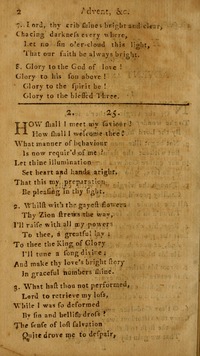 2 Advent, &c.
7. Lord, thy crib shines bright and clear,
Chacing darkness every where,
Let no sin o'er-cloud this light,
That our faith be always bright.
8. Glory to the God of love!
Glory to his son above!
Glory to the spirit be!
Glory to the blessed Three.
2. 25.
HOW shall I meet my saviour?
How shall I welcome thee?
What manner of behaviour
Is now requir'd of me?
Let thine illumination
Set heart and hands aright,
That this my preparation
Be pleasing in thy sight.
2. Whilst with the gayest flowers
Thy Zion strews the way,
I'll raise with all my powers
To thee, a grateful lay;
To thee the King of Glory
I'll tune a song divine;
And make thy love's bright story
In graceful numbers shine.
3. What hast thou not performed,
Lord to retrieve my loss,
While I was so deformed
By sin and hellish dross?
The sense of lost salvation
Quite drove me to despair,